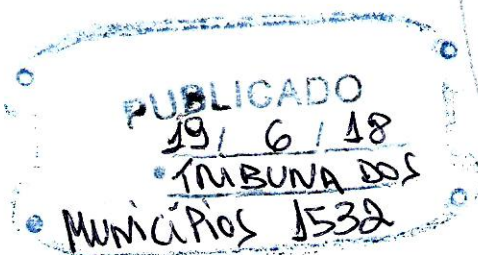 PUBLICADO
19 / 6 / 18
TRIBUNA DOS
MUNICÍPIOS 1532